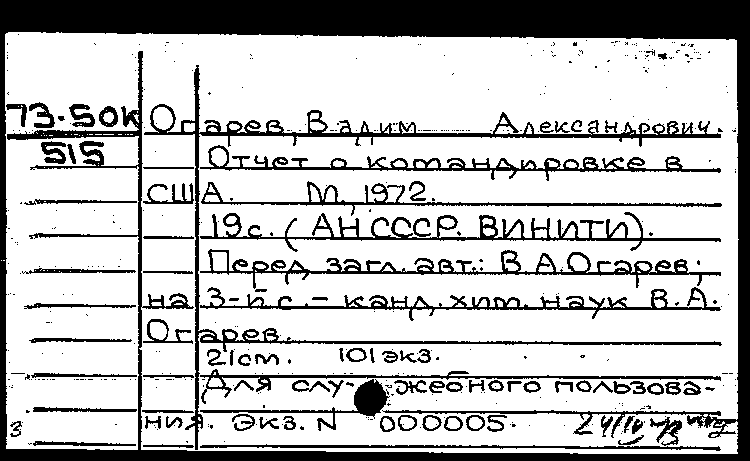 73-50к Огарев, Вадим Александрович.
515 Отчет о командировке в
США. М., 1972.
19с. (АН СССР. ВИНИТИ).
Перед загл. авт.: В.А.Огарев;
на 3-й с. - канд. хим. наук В.А.
Огарев.
21см. 101экз.
Для служебного пользова-
ния. Экз. N 000005.
3